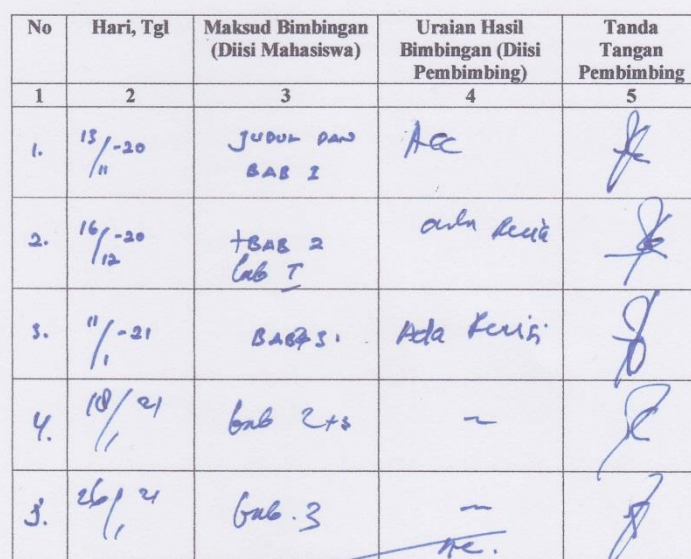 No Hari, Tgl Maksud Bimbingan (Diisi Mahasiswa) Uraian Hasil Bimbingan (Diisi Pembimbing) Tanda Tangan Pembimbing
1 2 3 4 5
1. 13/11 -20 JUDUL DAN BAB 1 Acc
2. 16/12 -20 +BAB 2 bab I ada
3. 11/1 -21 Ada Revisi
4. 18/1 21 bab 2+3 ~
5. 26/1 21 bab. 3 ~